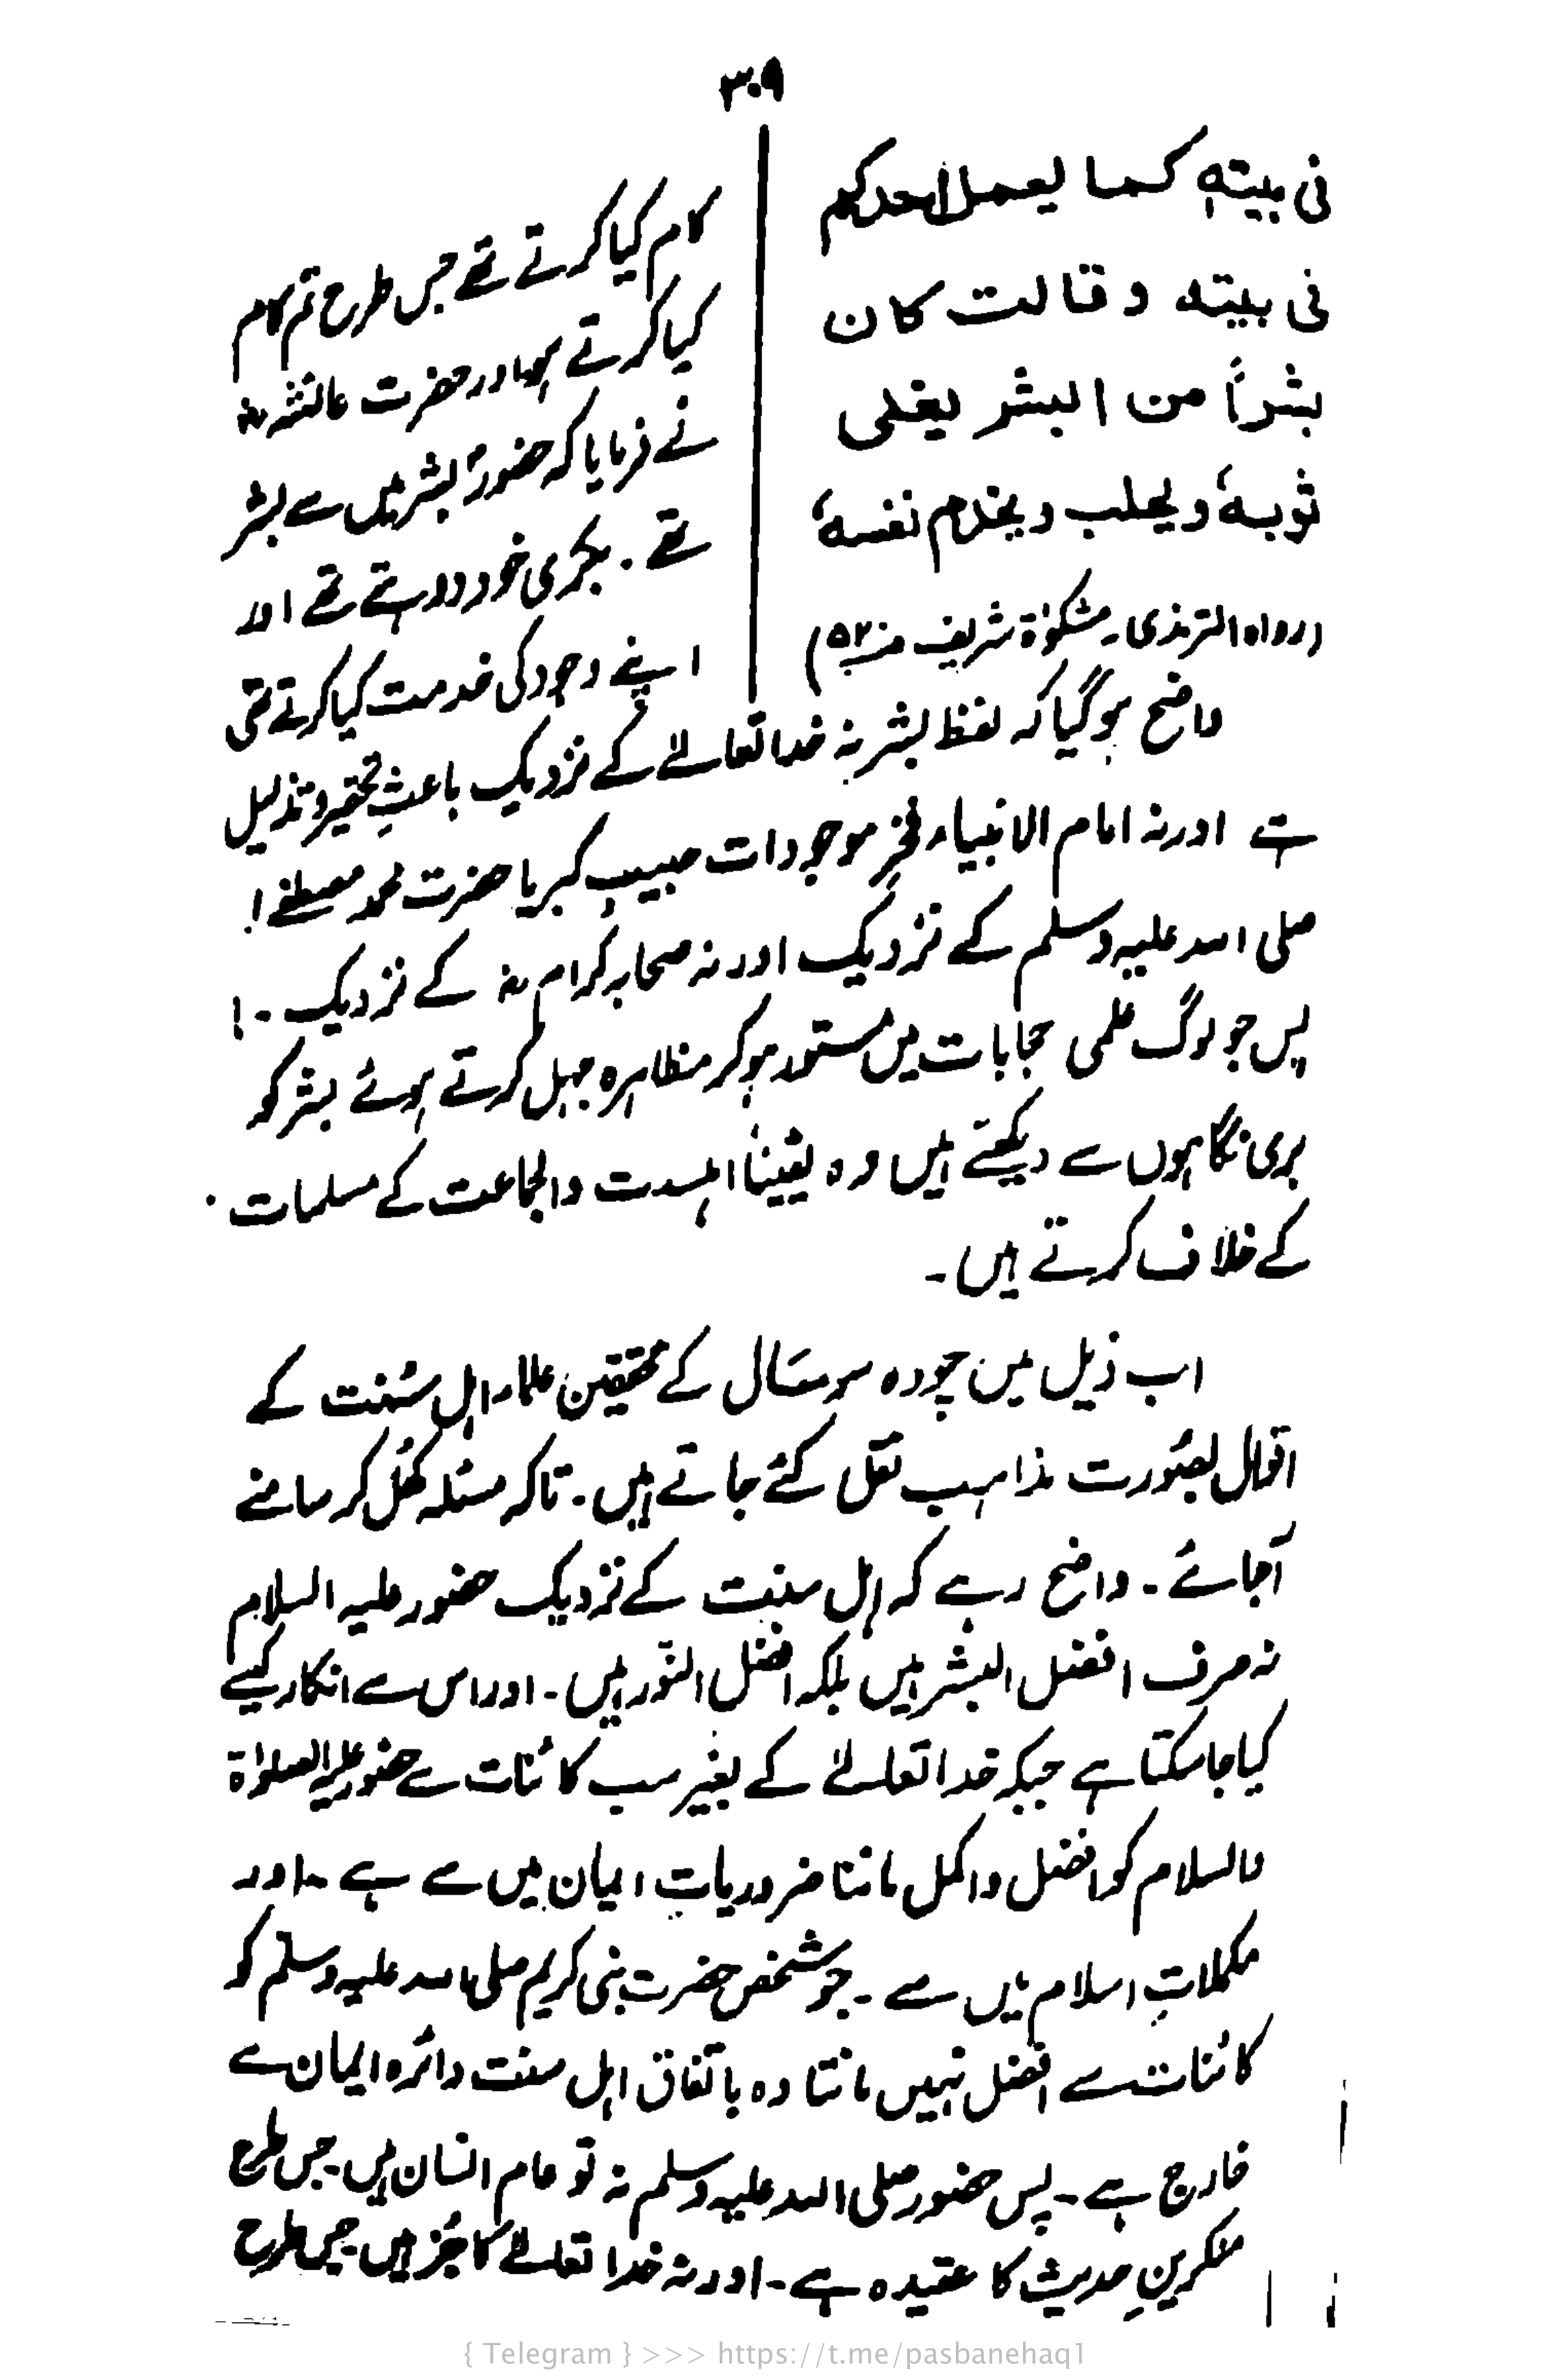 ۳۰۹
فی بیتہٖ کما یعمل احدکم
فی بیتہ وقالت کان
بشراً من البشر یفلی
ثوبہٗ ویحلب ویخدم نفسہٗ
(رواہ الترمذی۔ مشکوٰۃ شریف
کام کیا کرتے تھے جس طرح تم کام
کیا کرتے ہو اور حضرت عائشہ رض
نے فرمایا کہ حضورؐ بشر میں سے بشر
تھے۔ بکری خود دوہتے تھے اور
اپنے وجود کی خدمت کیا کرتے تھی
واضح ہوگیا کہ لفظ بشر نہ خدا تعالےٰ کے نزدیک باعثِ تحقیر و تذلیل
ہے اور نہ امام الانبیاء فخرِ موجودات حبیبِ کبریا حضرت محمد مصطفےٰ!
صلی اللہ علیہ وسلم کے نزدیک اور نہ صحابہ کرام رض کے نزدیک۔!
پس جو لوگ علمی حجابات میں مستور ہو کر مظاہرہ جہل کرتے ہوئے بشر کو
بری نگاہوں سے دیکھتے ہیں وہ یقیناً اہلسنت والجماعت کے مسلمات
کے خلاف کرتے ہیں۔
اب ذیل میں چودہ سو سَال کے محققین علماء اہل سُنت کے
اقوال بصُورت مذاہب نقل کئے جاتے ہیں۔ تاکہ مسئلہ کھُل کر سامنے
آجائے۔ واضح رہے کہ اہل سنت کے نزدیک حضور علیہ السلام
نہ صرف افضل البشر ہیں بلکہ افضل النّور ہیں۔ اور اس سے انکار کیسے
کیا جا سکتا ہے جبکہ خدا تعالےٰ کے بغیر سب کائنات سے حضور علیہ الصلوٰۃ
والسلام کو افضل واکمل ماننا ضروریاتِ ایمان میں سے ہے۔ اور
مکملاتِ اسلام میں سے۔ جو شخص حضرت نبی کریم صلی اللہ علیہ وسلم کو
کائنات سے افضل نہیں مانتا وہ باتفاق اہل سنت دائرہ ایمان سے
خارج ہے۔ پس حضور صلی اللہ علیہ وسلم نہ تو عام انسان ہیں۔ جس طرح
منکرینِ حدیث کا عقیدہ ہے۔ اور نہ خدا تعالےٰ کا جُز ہیں۔ جس طرح
{ Telegram } >>> https://t.me/pasbanehaq1